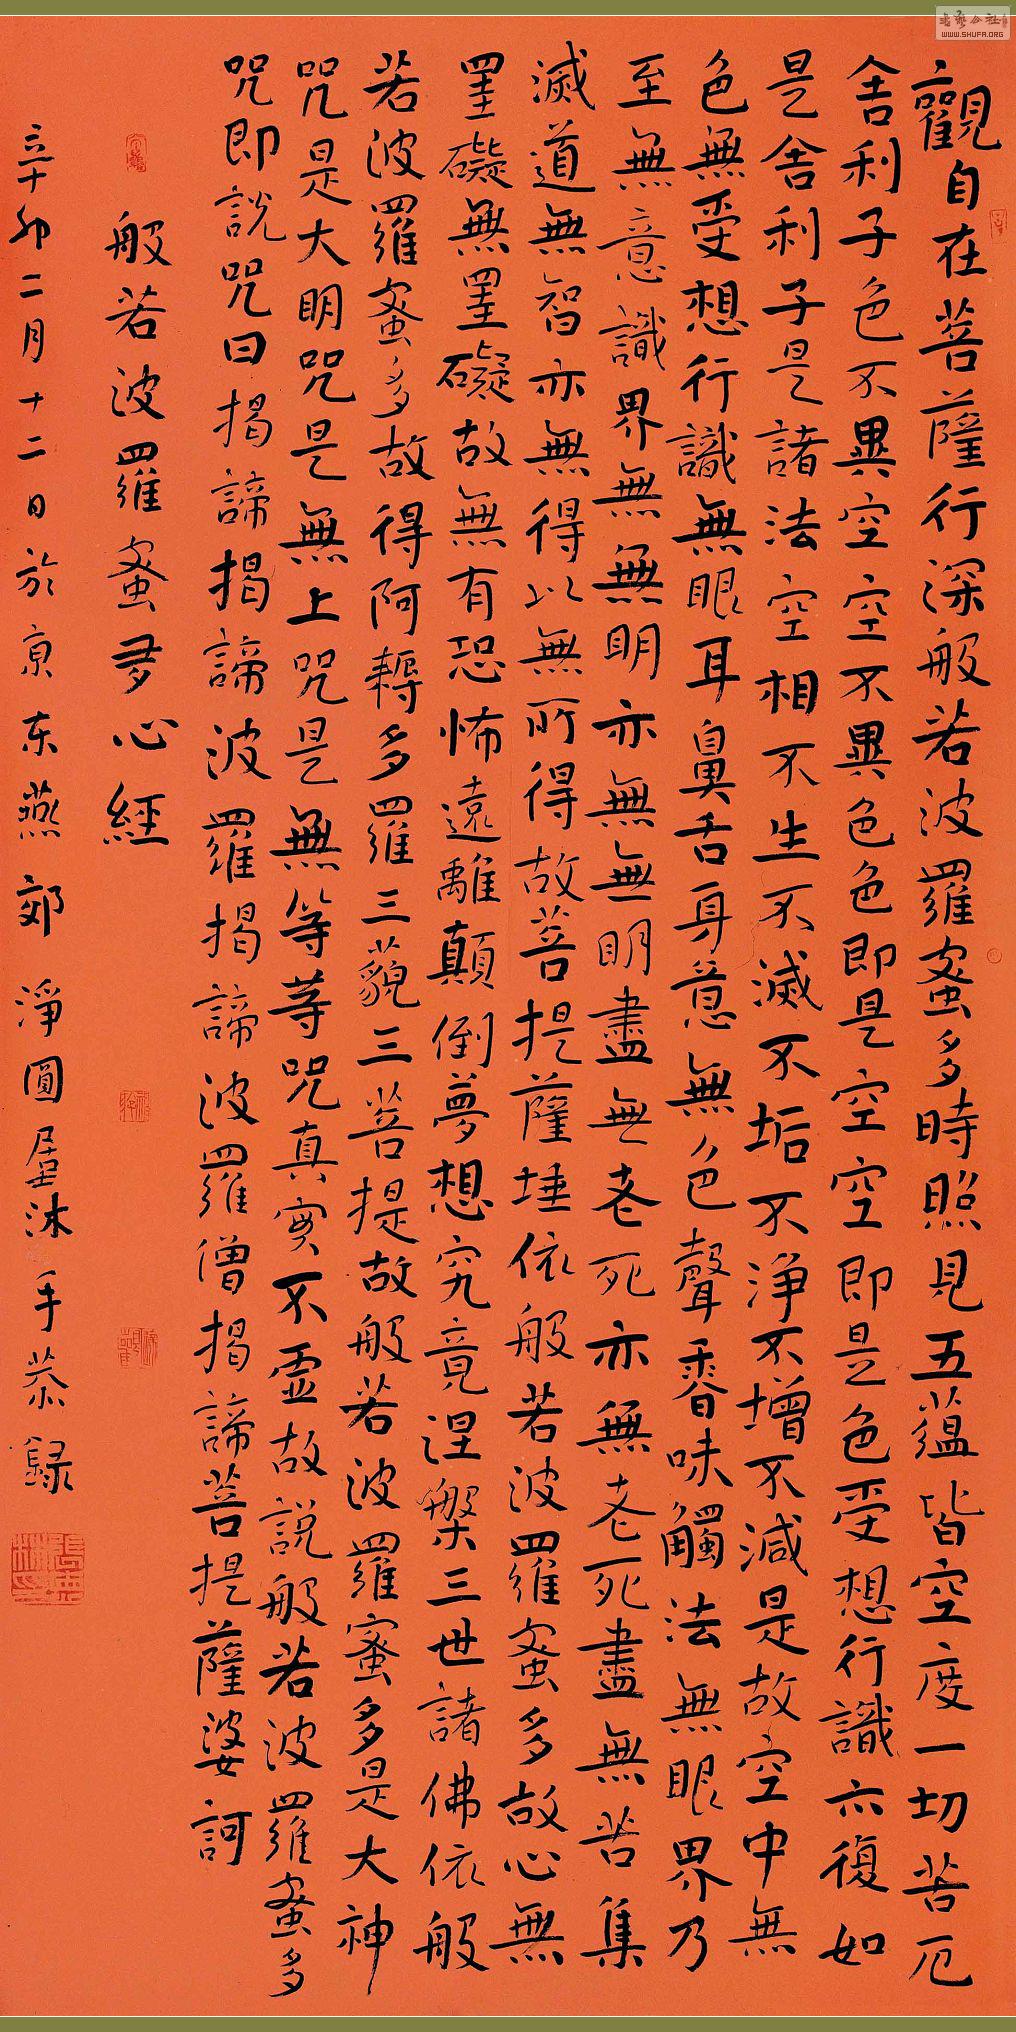 觀自在菩薩行深般若波羅蜜多時照見五蘊皆空度一切苦厄
舍利子色不異空空不異色色即是空空即是色受想行識亦復如
是舍利子是諸法空相不生不滅不垢不淨不增不減是故空中無
色無受想行識無眼耳鼻舌身意無色聲香味觸法無眼界乃
至無意識界無無明亦無無明盡無老死亦無老死盡無苦集
滅道無智亦無得以無所得故菩提薩埵依般若波羅蜜多故心無
罣礙無罣礙故無有恐怖遠離顛倒夢想究竟涅槃三世諸佛依般
若波羅蜜多故得阿耨多羅三藐三菩提故般若波羅蜜多是大神
咒是大明咒是無上咒是無等等咒真實不虛故說般若波羅蜜多
咒即說咒曰揭諦揭諦波羅揭諦波羅僧揭諦菩提薩婆訶
般若波羅蜜多心經
辛卯二月十二日於京东燕郊淨圓居沐手恭録
WWW.SHUFA.ORG